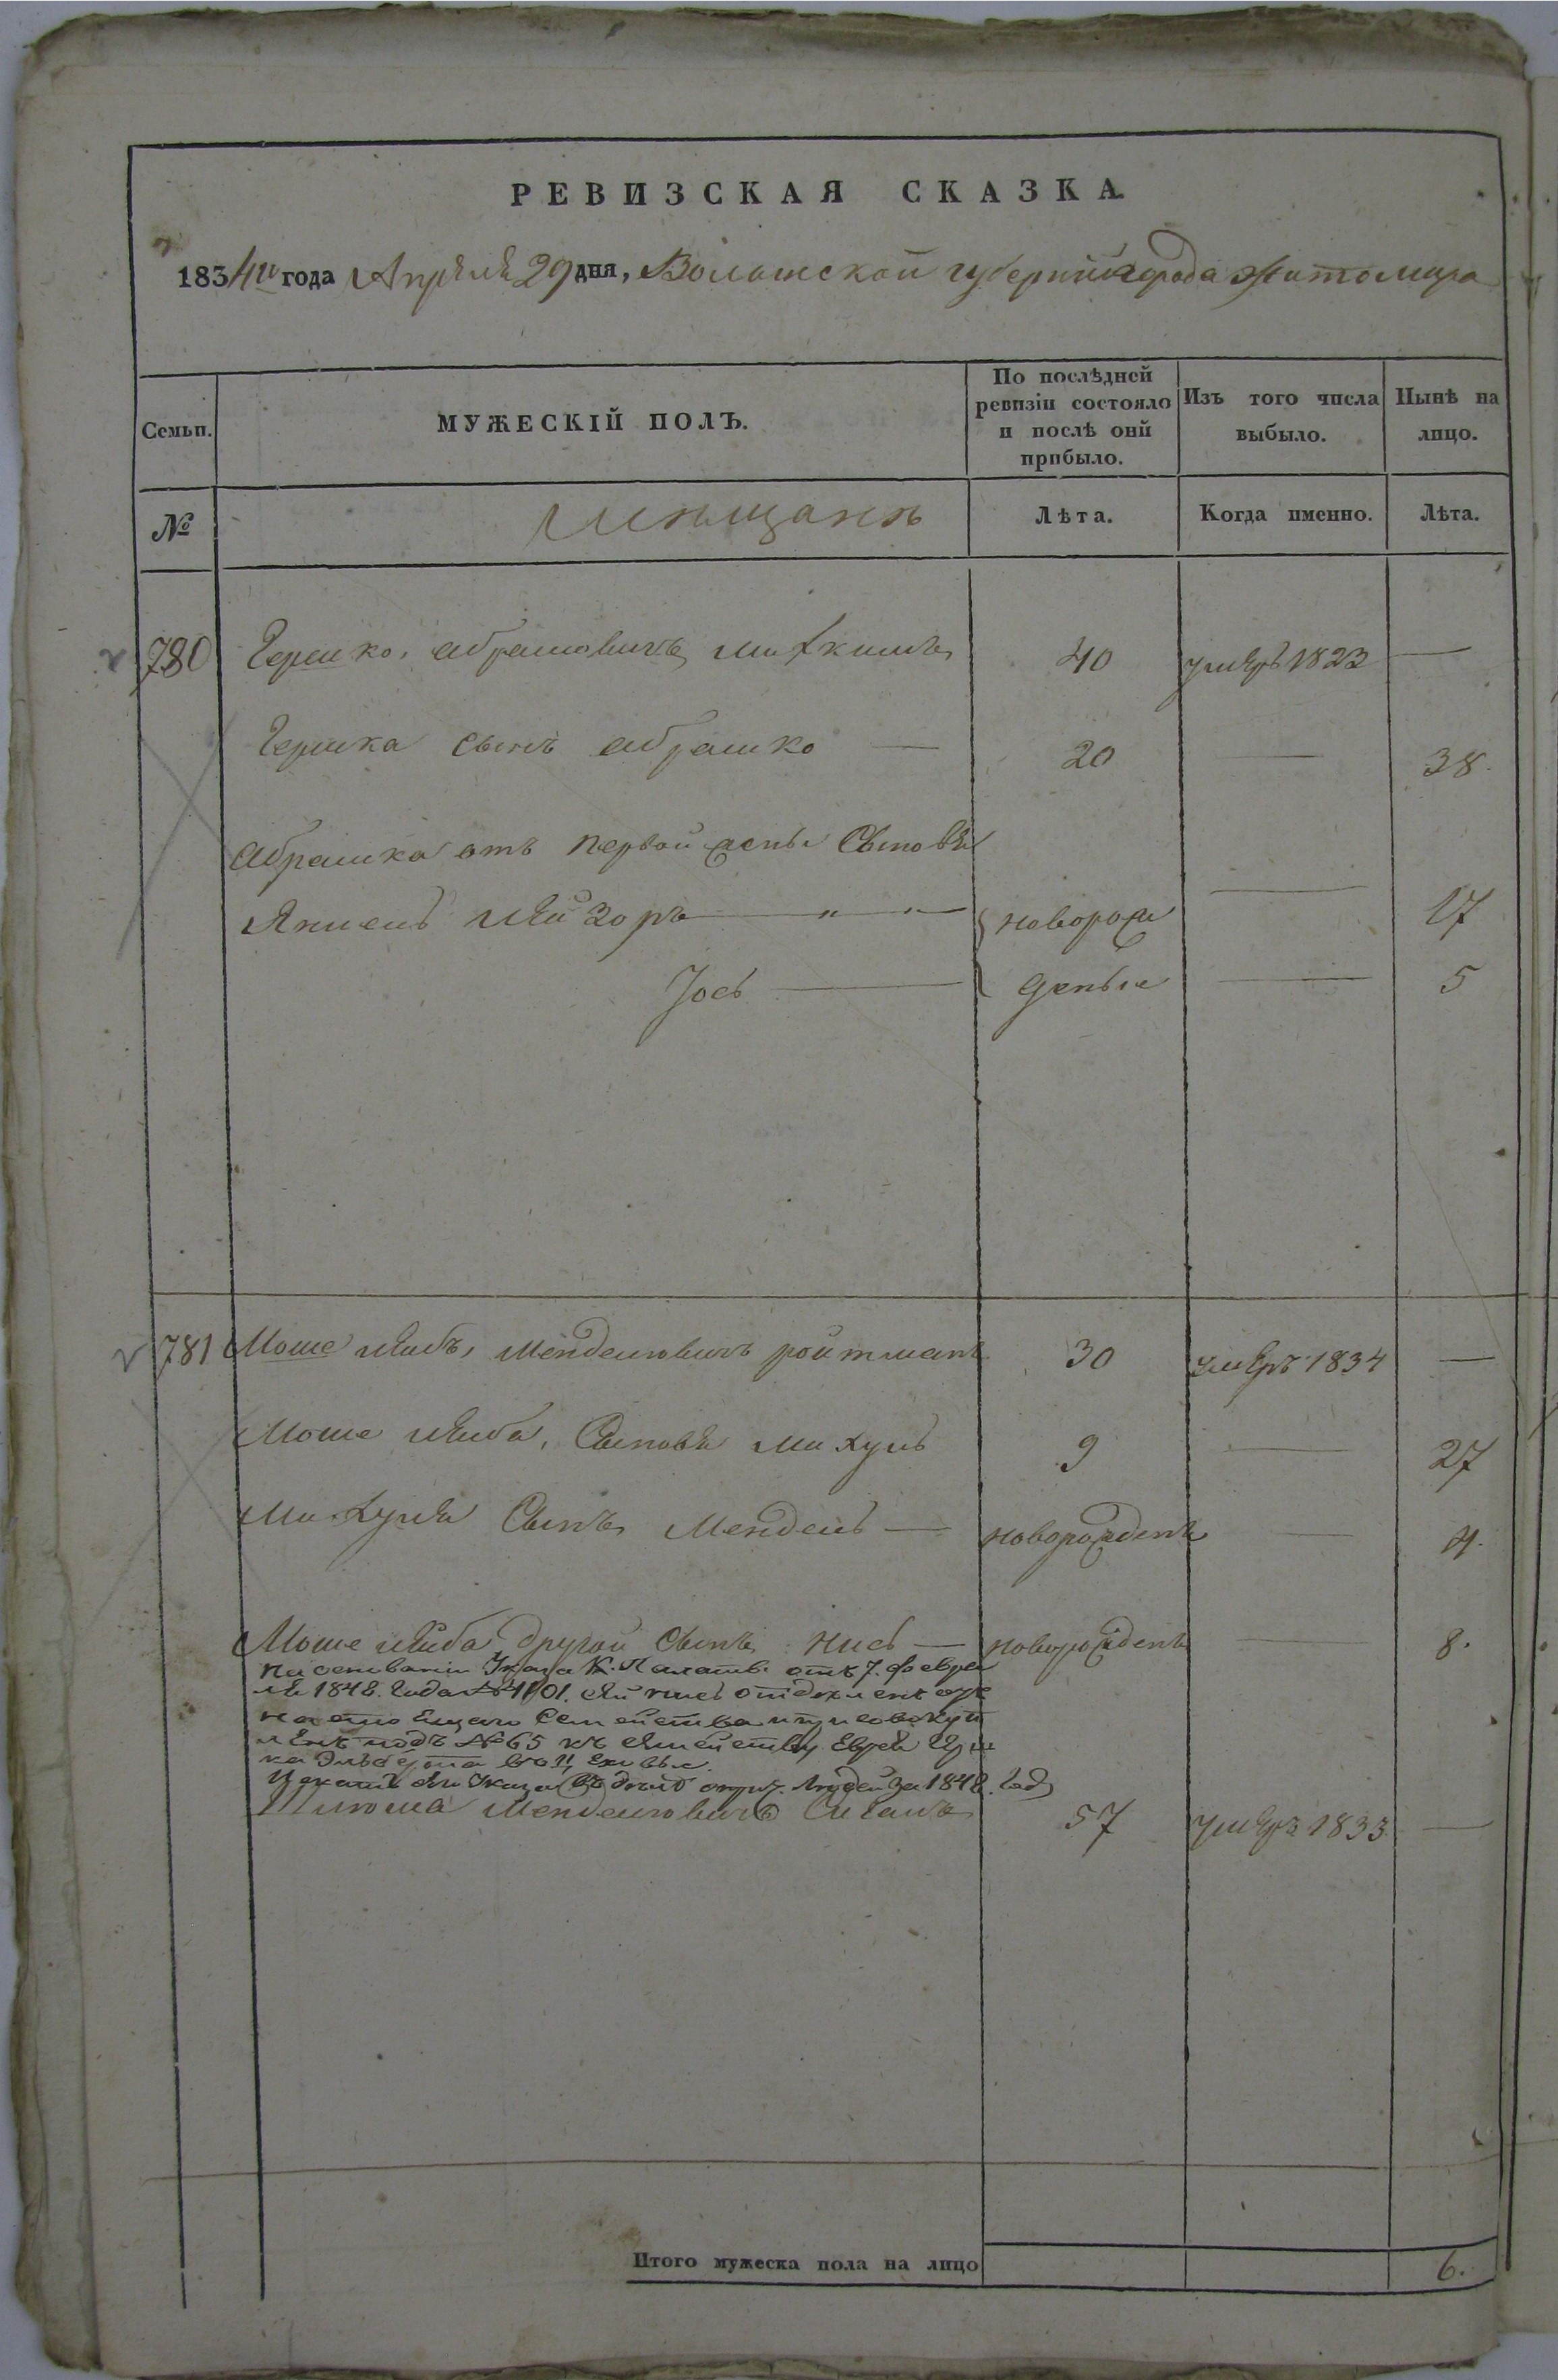 РЕВИЗСКАЯ СКАЗКА.
1834го года Апрѣля 29 дня, Волынской губернии города Житомира
Семьи.
МУЖЕСКІЙ ПОЛЪ.
По послѣдней ревизіи состояло и послѣ онй прибыло.
Изъ того числа выбыло.
Нынѣ на лицо.
№
Мѣщанѣ
Лѣта.
Когда именно.
Лѣта.
780 Гершко, Абрамовичъ 40 умеръ 1823 —
Гершка сынъ Абрашко — 20 — 38.
Абрашка отъ первой жены Сыновья
Лейзоръ — " " — новорож — 17
Іось — деные — 5
781 Моше Лейбъ, Менделіовичъ ройтманъ 30 умеръ 1834 —
Моше Лейба, Сыновья Михуль 9 — 27
Михуля Сынъ Мендель — новорожденъ — 4.
Моше Лейба другой Сынъ Нись — новорожденъ — 8.
На основаніи Указа К. Палаты отъ 7. февра
ля 1848. года № 1101. сей Нись отдѣленъ
Семейства и
подъ № 65 къ семейству Еврея Герш
ка
Указа людей за 1848. годъ
Менделіовичъ 57 умеръ 1833 —
Итого мужеска пола на лицо 6.